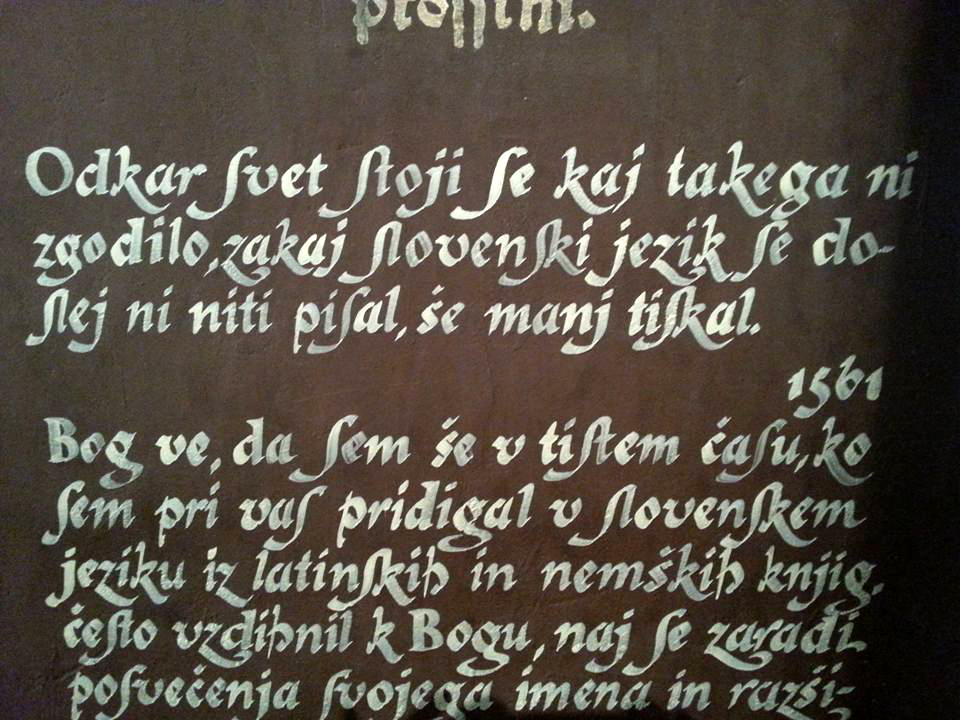 prossim.
Odkar svet stoji se kaj takega ni
zgodilo, zakaj slovenski jezik se do-
slej ni niti pisal, še manj tiskal.
1561
Bog ve, da sem še v tistem času, ko
sem pri vas pridigal v slovenskem
jeziku iz latinskih in nemških knjig,
često vzdihnil k Bogu, naj se zaradi
posvečenja svojega imena in razši-